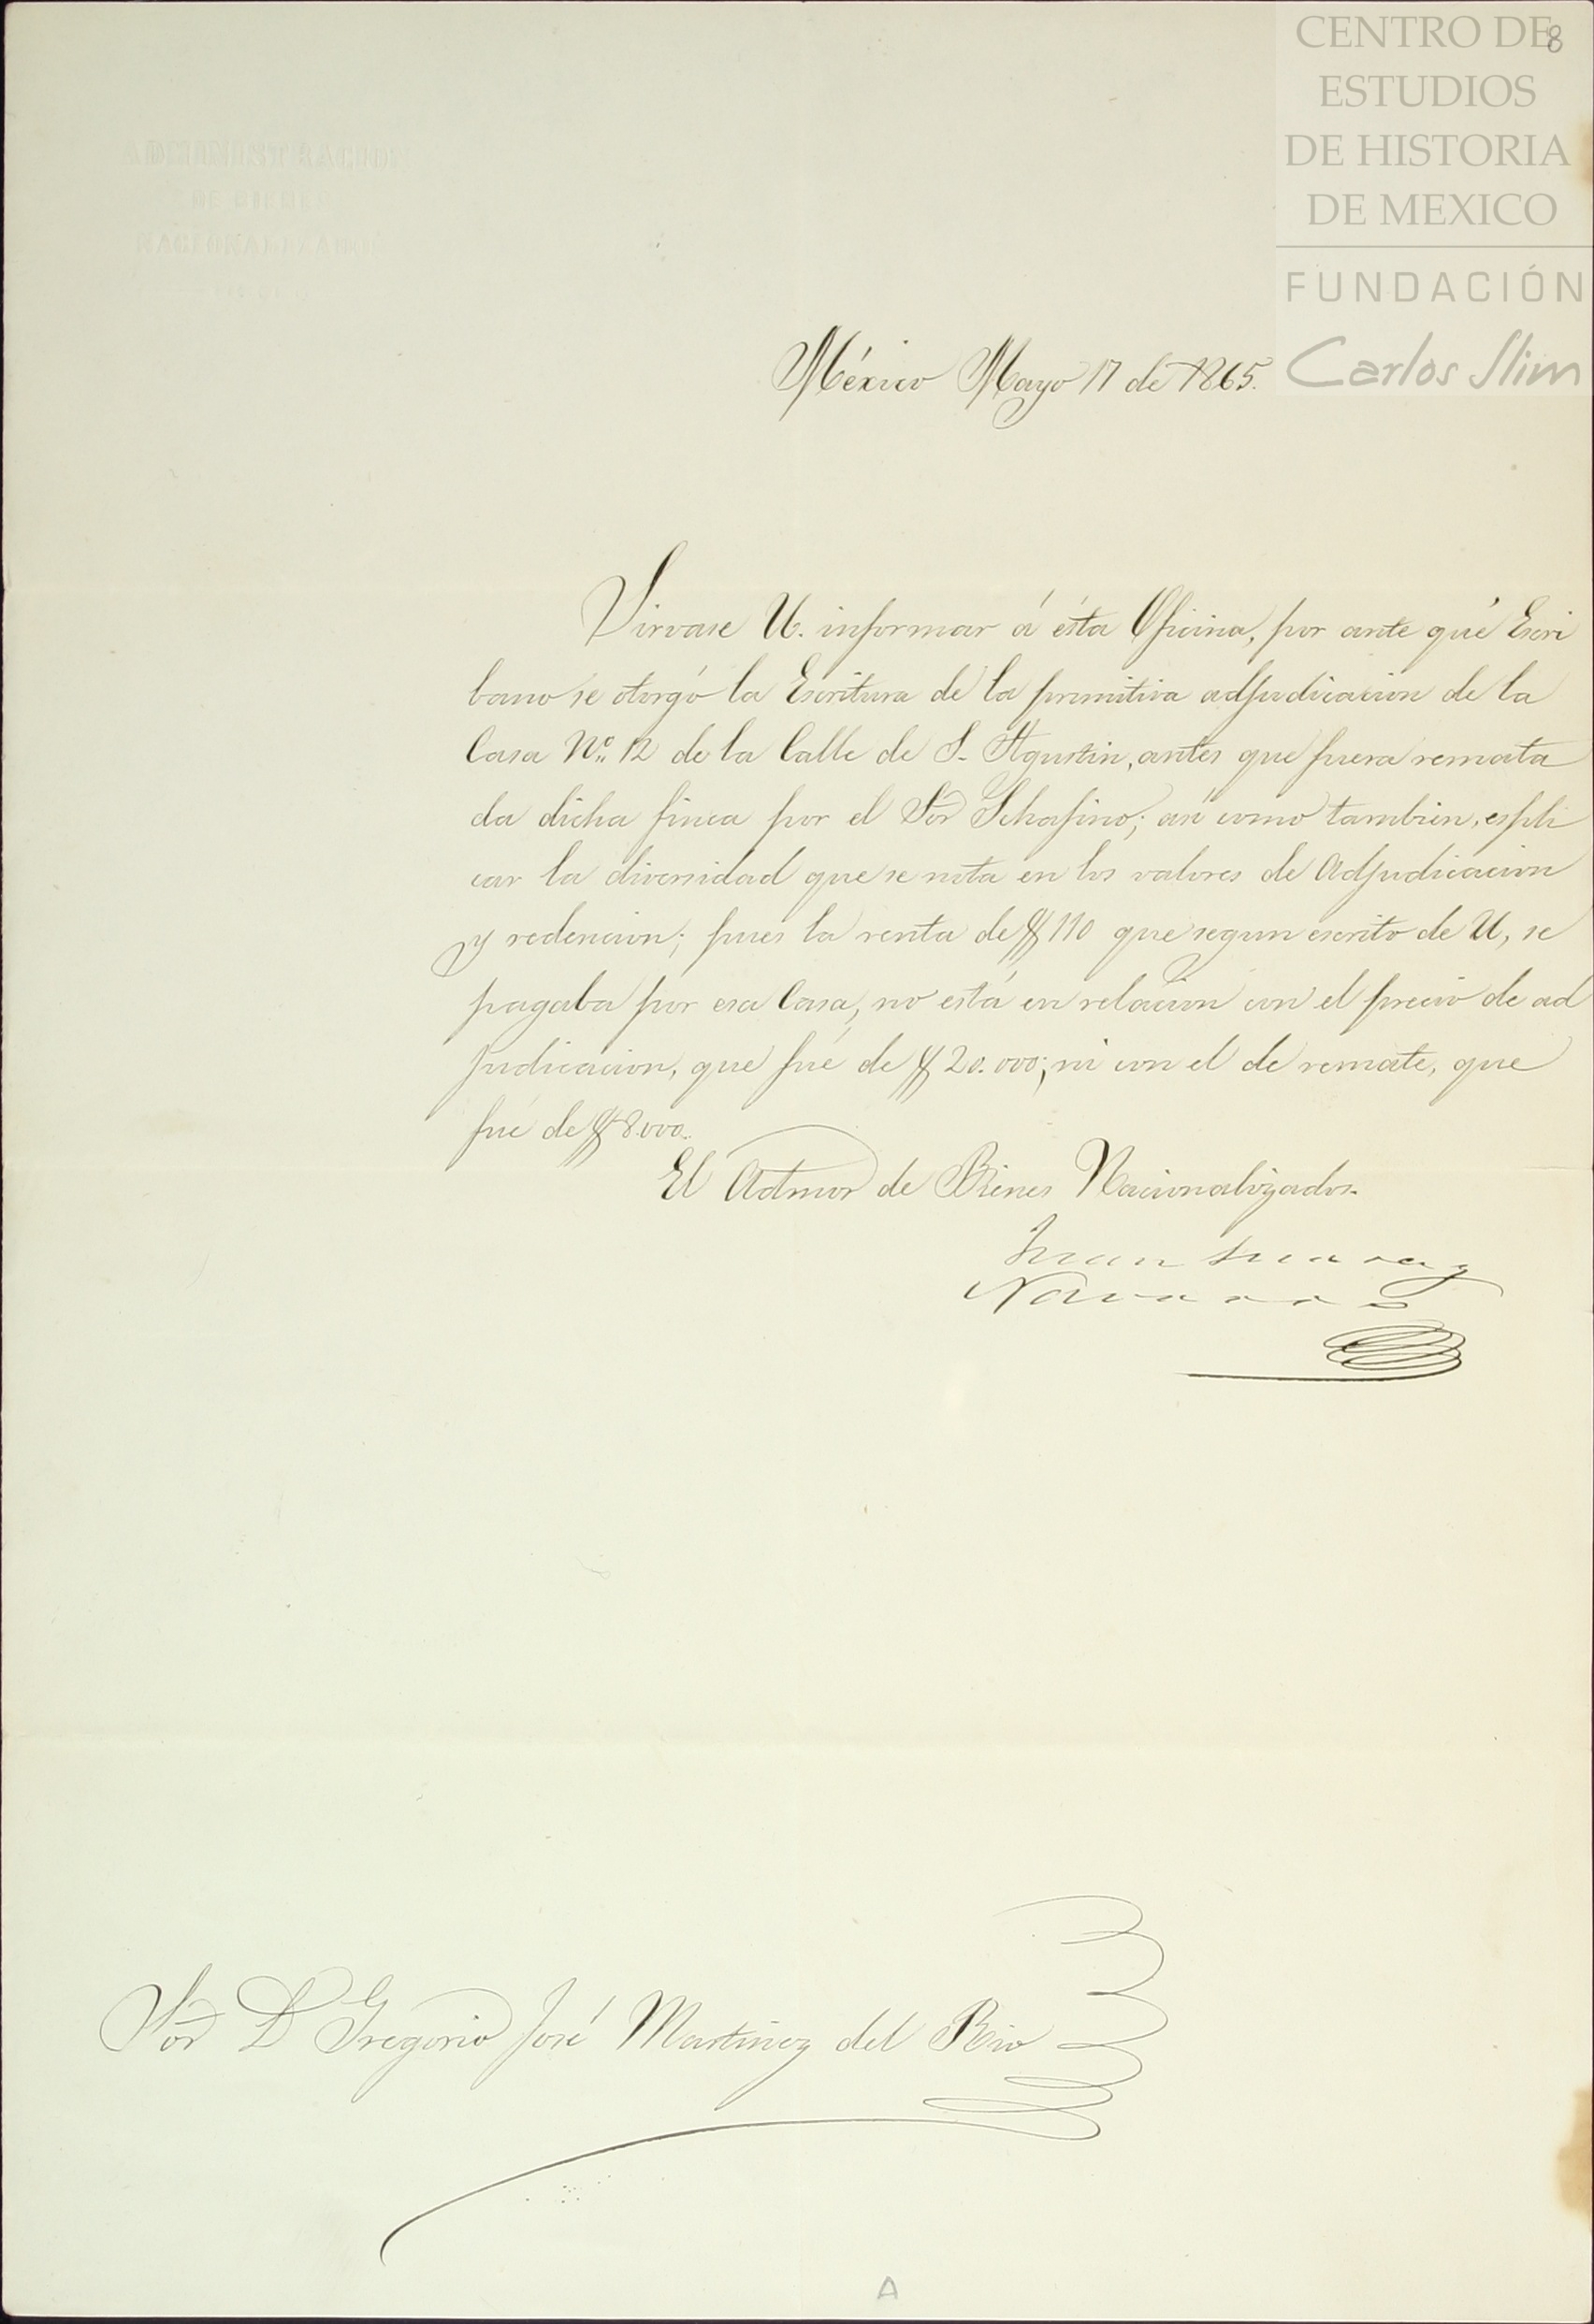 CENTRO DE
ESTUDIOS
DE HISTORIA
DE MEXICO
FUNDACIÓN
Carlos Slim
8
ADMINISTRACION
DE BIENES
NACIONALIZADOS
México Mayo 17 de 1865.
Sirvase U. informar á ésta Oficina, por ante qué Escri
bano se otorgó la Escritura de la primitiva adjudicacion de la
Casa No. 12 de la Calle de S. Agustin, antes que fuera remata
da dicha finca por el Sor Schafino; asi como tambien, espli
car la diversidad que se nota en los valores de Adjudicacion
y redencion; pues la renta de $110 que segun escrito de U, se
pagaba por esa Casa, no está en relacion con el precio de ad
judicacion, que fué de $20.000; ni con el de remate, que
fué de $8.000.
El Admor de Bienes Nacionalizados.
Juan Suarez
Navarro
Sor D Gregorio José Martinez del Rio
A